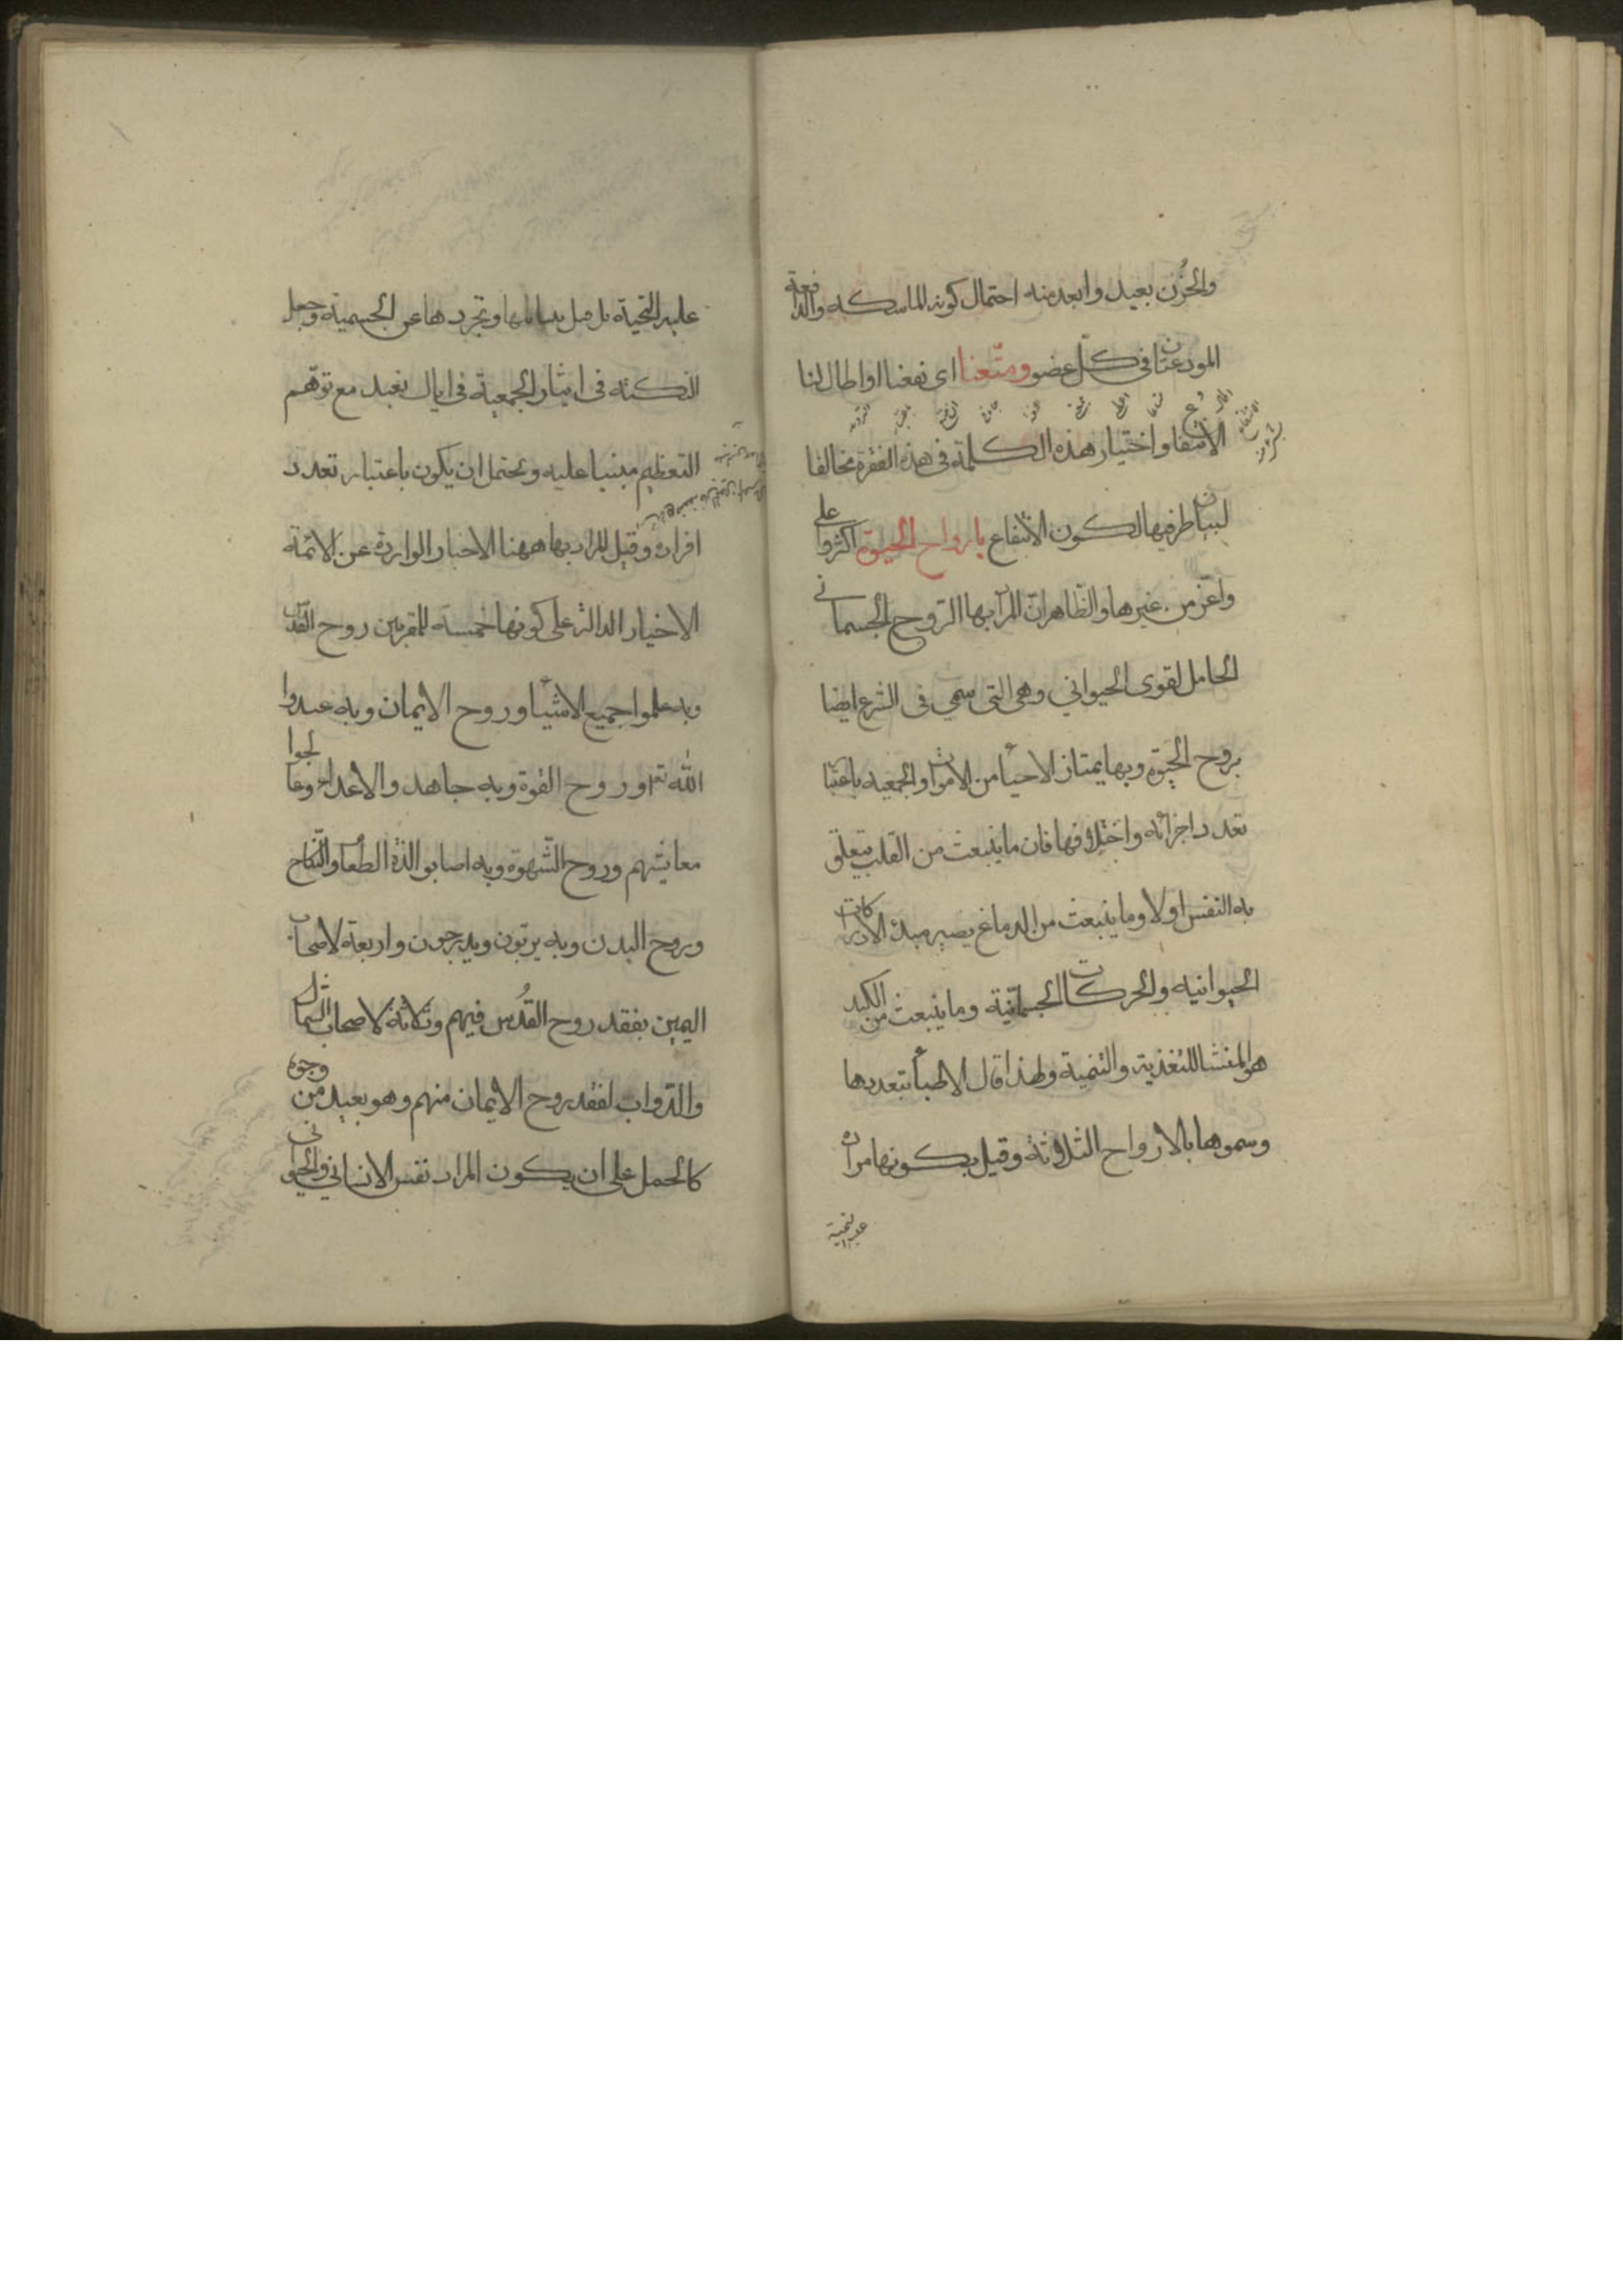 والحُزن بعيد وابعد منه احتمال كونه للماسكه والدافعة
المودعتان فى كلّ عضو ومتّعنا اى نفعنا او اطال لنا
الانتفاع واختيار هذه الكلمة فى هذه الفقرة مخالفا
لبيان طرفيها لكون الانتفاع بارواح الحيوة اكثر وا على
واعز من غيرها والظاهر انّ المراد بها الروح الجسمانى
الحامل لقوى الحيوانى وهى التى سمى فى الشرع ايضا
بروح الحيوة وبها يمتاز الاحياء من الاموات والجمعيه باعتبار
تعدد اجزائه واختلافها فان ما ينبعث من القلب يتعلق
به النفس اولا وما ينبعث من الدماغ يصير مبدء الادراكات
الحيوانيه والحركات الجسمانية وما ينبعث من الكبد
هو المنشا للتغذية والتنمية ولهذا قال الاطباء بتعددها
وسموها بالارواح الثلاثة وقيل بكونها مراده
عليه التحية
عليه التحية بل قيل وتجردها عن الجسمية وجعل
النكته فى ايثار الجمعية فى اياك نعبد مع توهّم
التعظيم مبنيا عليه ويحتمل ان يكون باعتبار تعدد
افراده وقيل المراد بها ههنا الاخبار الواردة عن الائمة
الاخيار الدالة على كونها خمسة للمقربين روح القدس
وبه علموا جميع الاشياء وروح الايمان وبه عبدوا
الله تع وروح القوة وبه جاهدوا الاعداء وعالجوا
معايشهم وروح الشهوة وبه اصابوا لذة الطعام والنكاح
وروح البدن وبه يربون ويدرجون واربعة لاصحاب
اليمين بفقد روح القدُس فيهم وثلاثة لاصحاب الشمال
والدواب لفقد روح الايمان منهم وهو بعيد من وجوه
كالحمل على ان يكون المراد نفس الانسانى والحيوانى